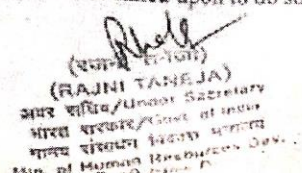 upon to do so
(RAJNI TANEJA)
अवर सचिव/Under Secretary
भारत सरकार/Govt. of India
मानव संसाधन विकास मंत्रालय
Min. of Human Resources Dev.